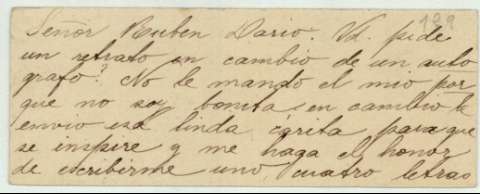 189
Señor Ruben Dario. Vd. pide
un retrato en cambio de un auto
grafo? No le mando el mio por
que no soy bonita en cambio le
envio esa linda carita para que
se inspire y me haga el honor
de escribirme uno, cuatro letras